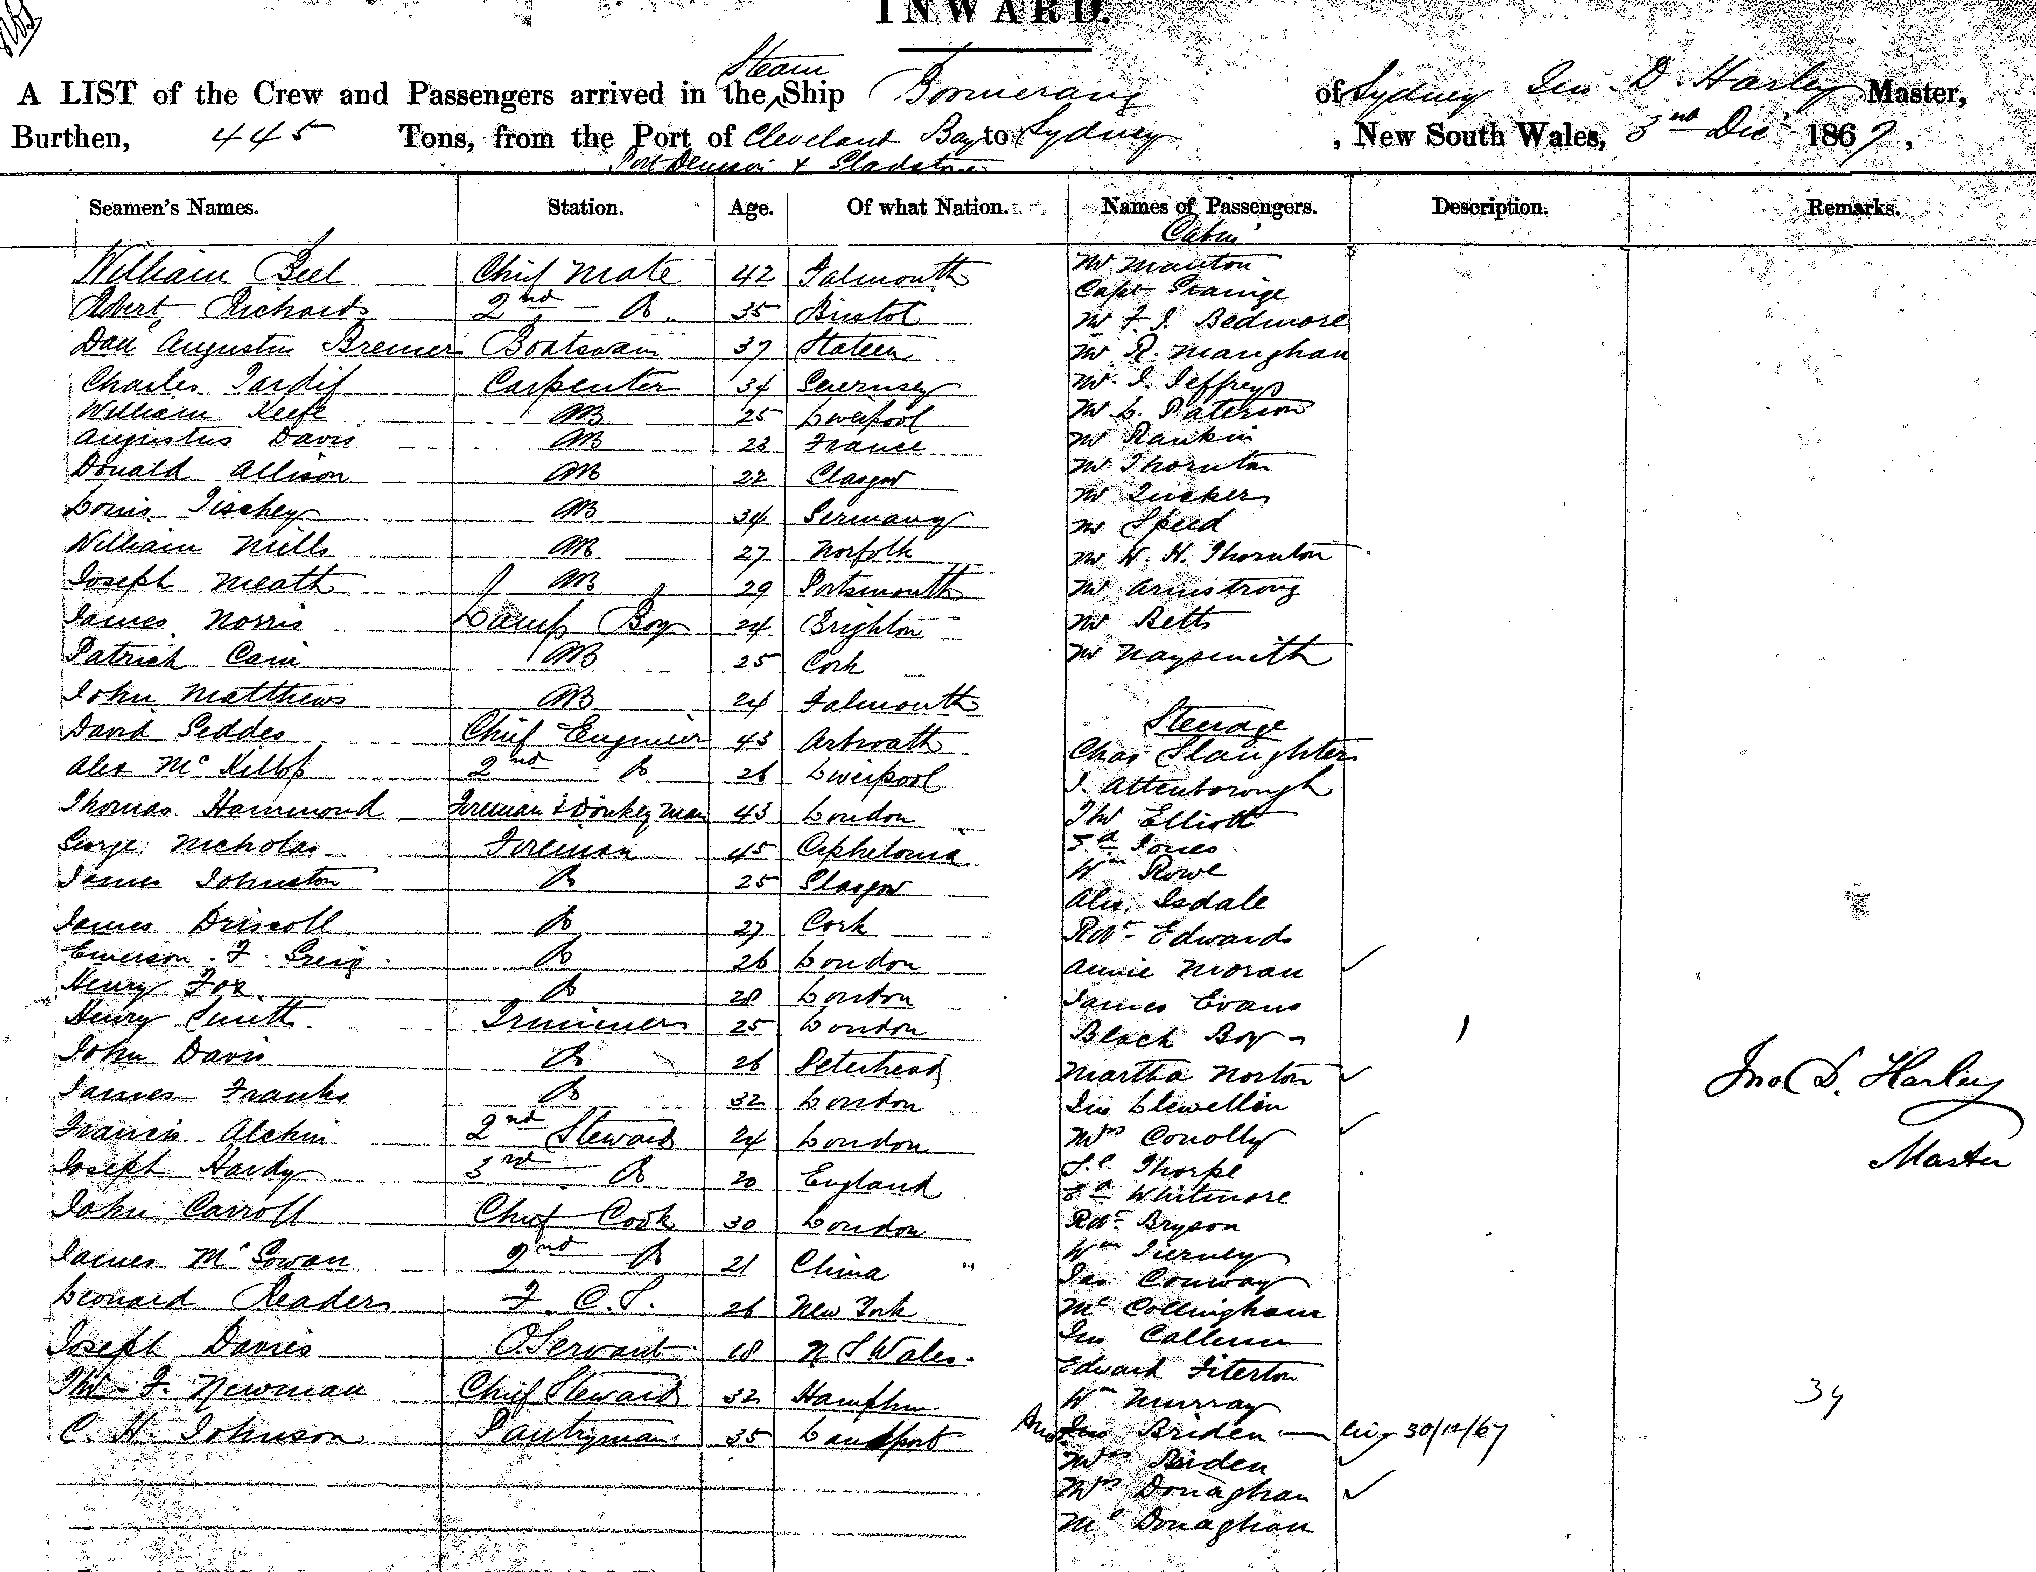 INWARD.
A LIST of the Crew and Passengers arrived in the Steam Ship Boomerang of Sydney Jno D. Harley Master,
Burthen, 445 Tons, from the Port of Cleveland Bay to Sydney, New South Wales, 3rd Dec 1867,
Port Denison & Gladstone
Seamen's Names. Station. Age. Of what Nation. Names of Passengers. Description. Remarks.
Cabin
William Bell Chief Mate 42 Falmouth Mr Manton
Capt Grainge
Robert Richards 2nd Do 35 Bristol Mr F. J. Bedmore
Augustus Bremer Boatswain 37 Mr R. Maughan
Charles Tardif Carpenter 34 Guernsey Mr J. Jeffreys
William Keefe AB 25 Liverpool Mr L. Paterson
Augustus Davis AB 23 France Mr Rankin
Donald Allison AB 22 Glasgow Mr Thornton
Mr Tucker
Louis Tischey AB 34 Germany Mr Speed
William Mills AB 27 Norfolk Mr W. H. Thornton
Joseph Meath AB 29 Portsmouth Mr Armstrong
James Norris Lamp Boy 24 Brighton Mr Betts
Patrick Cain AB 25 Cork Mr Naysmith
John Matthews AB 24 Falmouth
Steerage
David Geddes Chief Engineer 43 Arbroath Chas Slaughter
Alex McKillop 2nd Do 26 Liverpool J. Attenborough
Thomas Hammond Fireman & Donkeyman 43 London Thos Elliott
George Nicholas Fireman 45 Cephelonia Jones
Wm Rowe
James Johnston Do 25 Glasgow Alex. Isdale
James Driscoll Do 27 Cork Robt Edwards
Emerson F. Greig Do 26 London Annie Moran
Henry Fox Do 28 London James Evans
Henry Smith Trimmer 25 London Black Boy
John Davis Do 26 Peterhead Martha Norton
James Franks Do 32 London Jno Llewellin
Francis Alchin 2nd Steward 24 London Mrs Conolly
Joseph Hardy 3rd Do 20 England Thorpe
Whitmore
John Carroll Chief Cook 30 London Robt Bryson
James McGowan 2nd Do 21 China Wm Tierney
Jas Conway
Leonard Readers F. C. S. 26 New York Mr Collingham
Jno Callum
Joseph Davies O Servant 18 N S Wales Edward Fiterton
Thos F. Newman Chief Steward 32 Wm Murray
C. H. Johnson Pantryman 35 Landport Jno Briden 30/12/67
Mrs Briden
Mrs Donaghan
Mr Donaghan
Jno D. Harley
Master
34